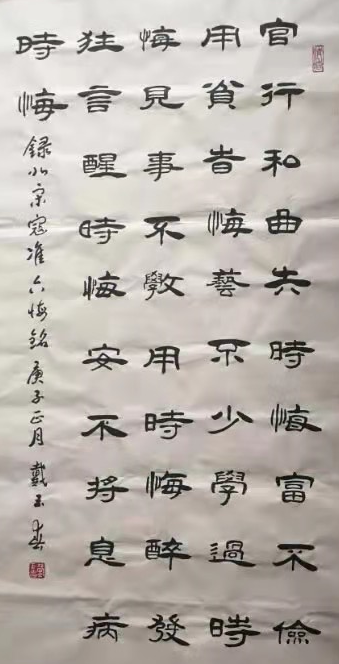 官行和曲失時悔富不儉
用貧旹悔藝不少學過時
悔見事不斆用時悔醉發
狂言醒時悔安不将息病
時悔 録北宋寇准六悔銘 庚子正月 戴玉春